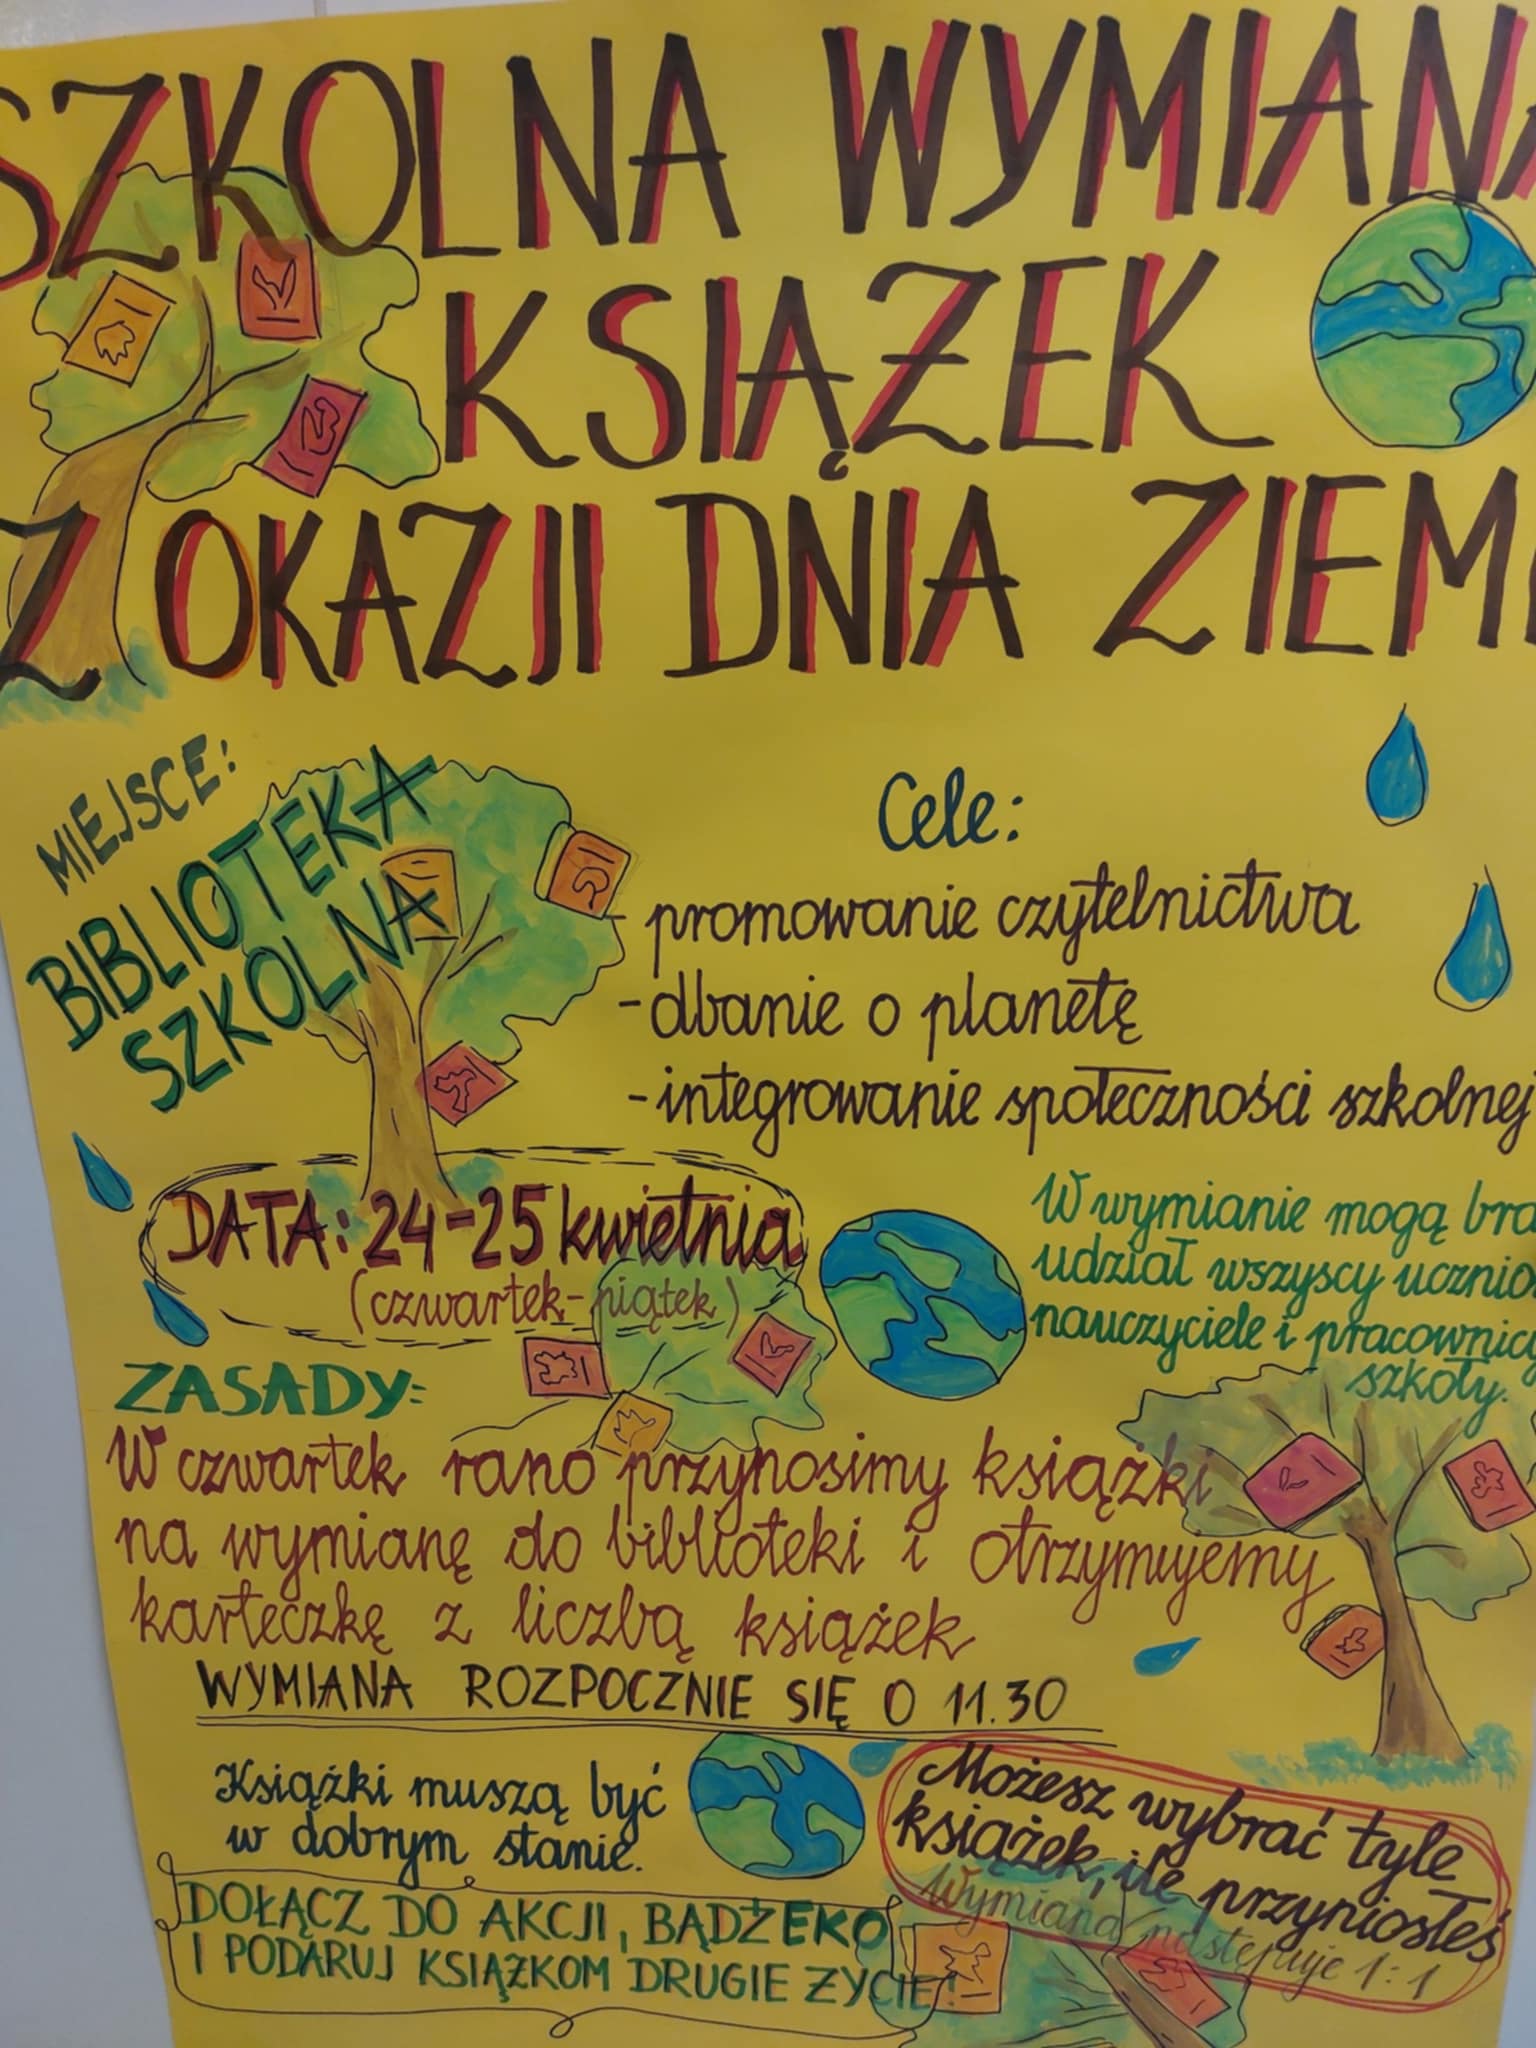 SZKOLNA WYMIANA
KSIĄŻEK
Z OKAZJI DNIA ZIEMI
MIEJSCE:
BIBLIOTEKA
SZKOLNA
Cele:
- promowanie czytelnictwa
- dbanie o planetę
- integrowanie społeczności szkolnej
DATA: 24-25 kwietnia
(czwartek-piątek)
W wymianie mogą bra
udział wszyscy ucznio
nauczyciele i pracownicy
szkoły.
ZASADY:
W czwartek rano przynosimy książki
na wymianę do biblioteki i otrzymujemy
karteczkę z liczbą książek
WYMIANA ROZPOCZNIE SIĘ O 11.30
Książki muszą być
w dobrym stanie.
Możesz wybrać tyle
książek, ile przyniosłeś
Wymiana następuje 1:1
DOŁĄCZ DO AKCJI, BĄDŹ EKO
I PODARUJ KSIĄŻKOM DRUGIE ŻYCIE!